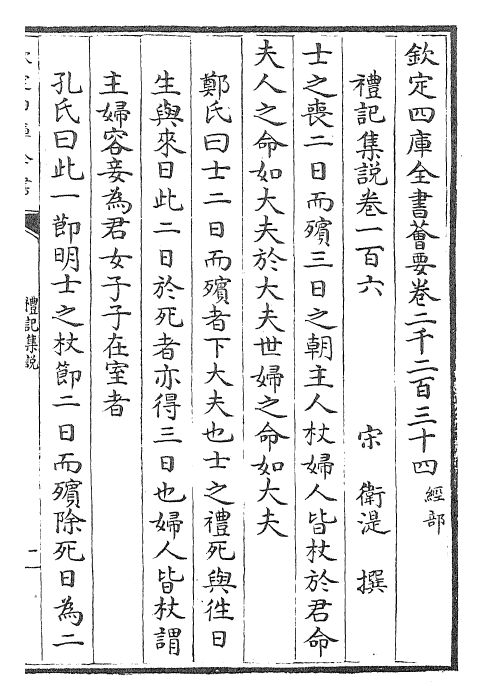 欽定四庫全書薈要卷二千二百三十四經部
禮記集説卷一百六
宋 衛湜 撰
士之喪二日而殯三日之朝主人杖婦人皆杖於君命
夫人之命如大夫於大夫世婦之命如大夫
鄭氏曰士二日而殯者下大夫也士之禮死與徃日
生與來日此二日於死者亦得三日也婦人皆杖謂
主婦容妾為君女子子在室者
孔氏曰此一節明士之杖節二日而殯除死日為二
禮記集説